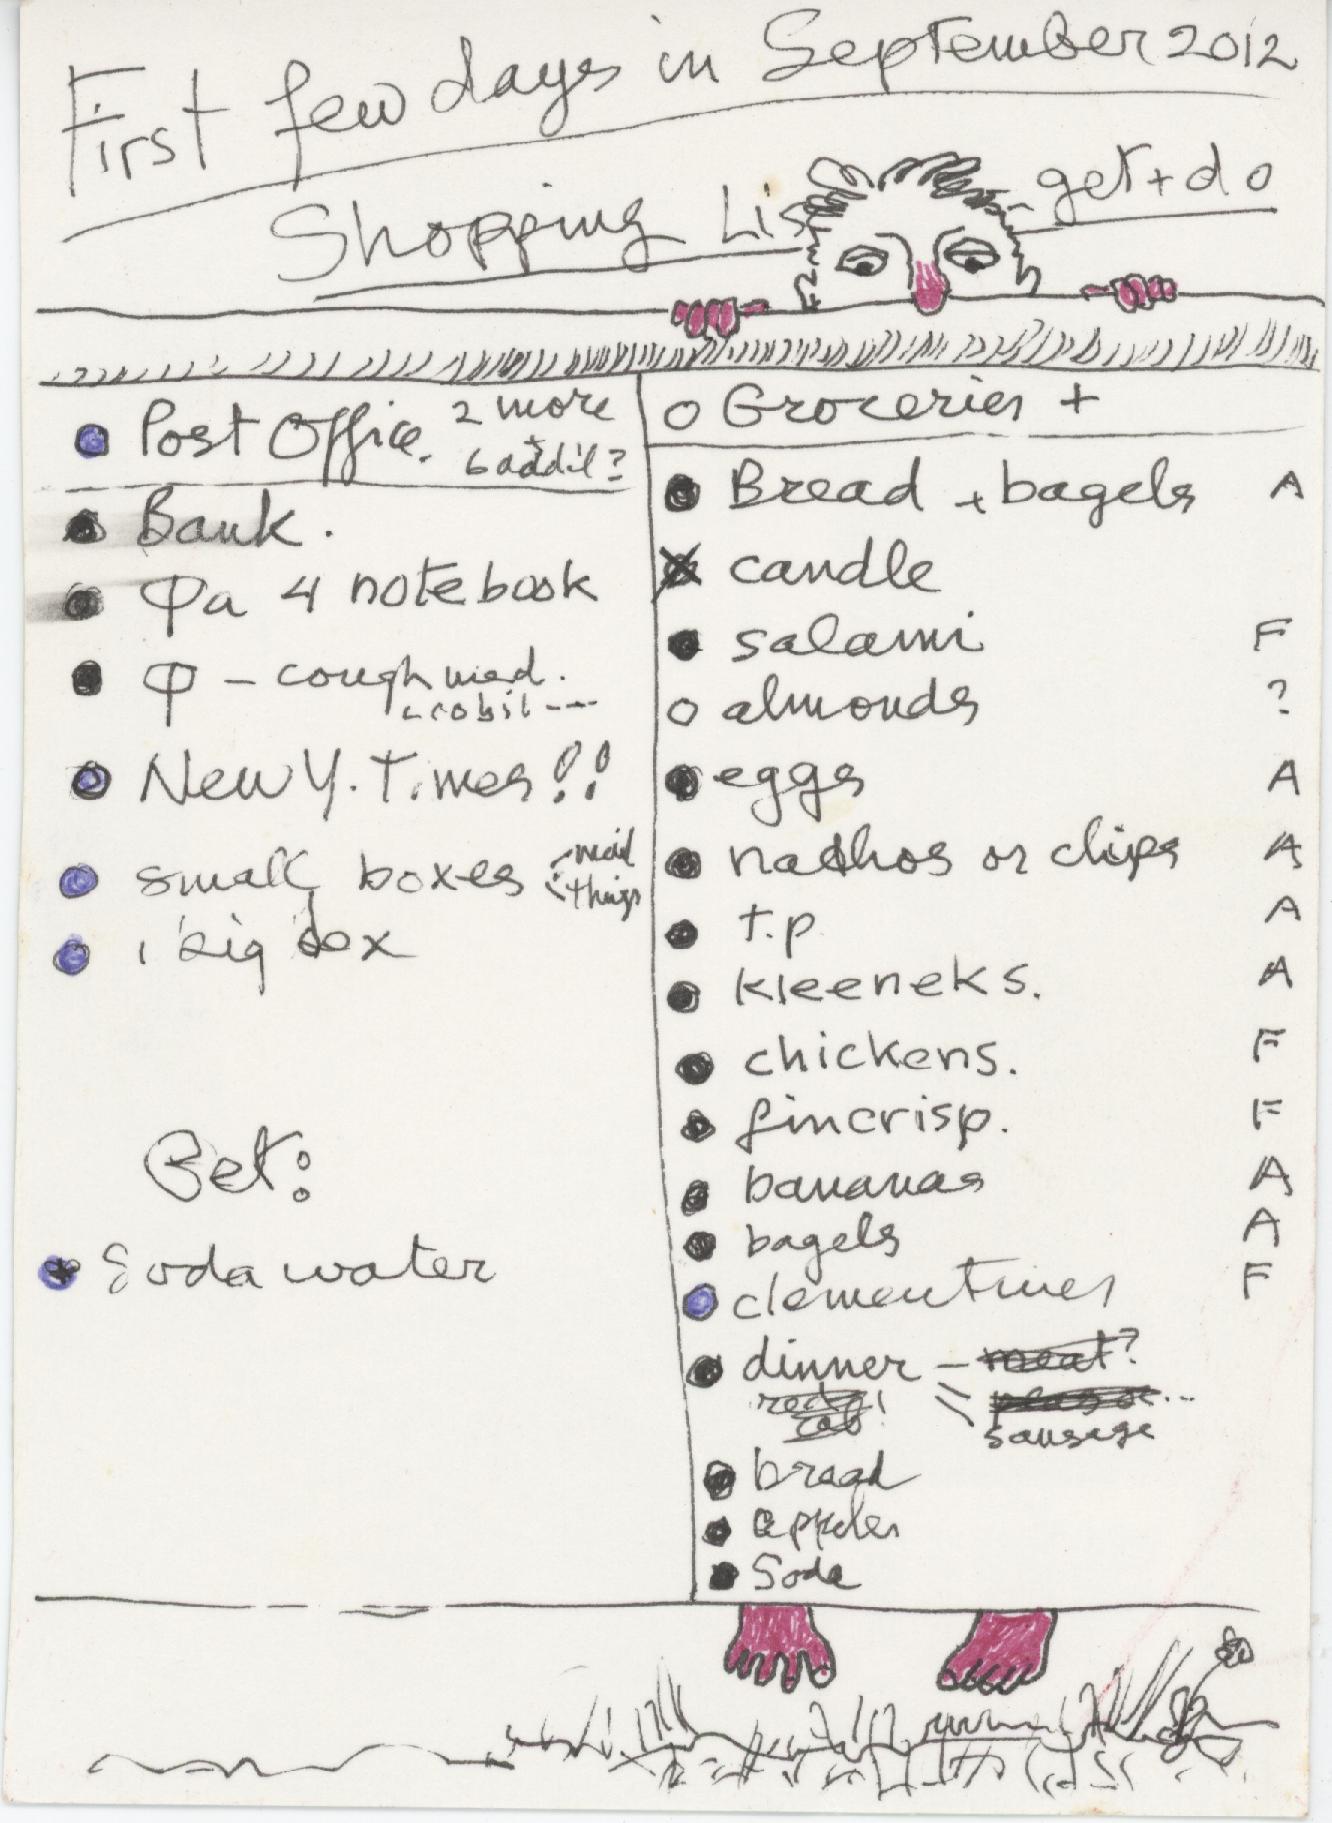 First few days in September 2012
Shopping Lis get + do
Post Office. 2 more
6 addil?
Bank.
Φa 4 notebook
Φ - cough med.
New Y. Times!!
small boxes mail
things
1 big box
Get:
Soda water
Groceries +
Bread + bagels A
candle
salami F
almonds ?
eggs A
nachos or chips A
t.p A
kleeneks. A
chickens. F
fincrisp. F
bananas A
bagels A
clementines F
dinner - meat?
sausage
bread
apples
Soda